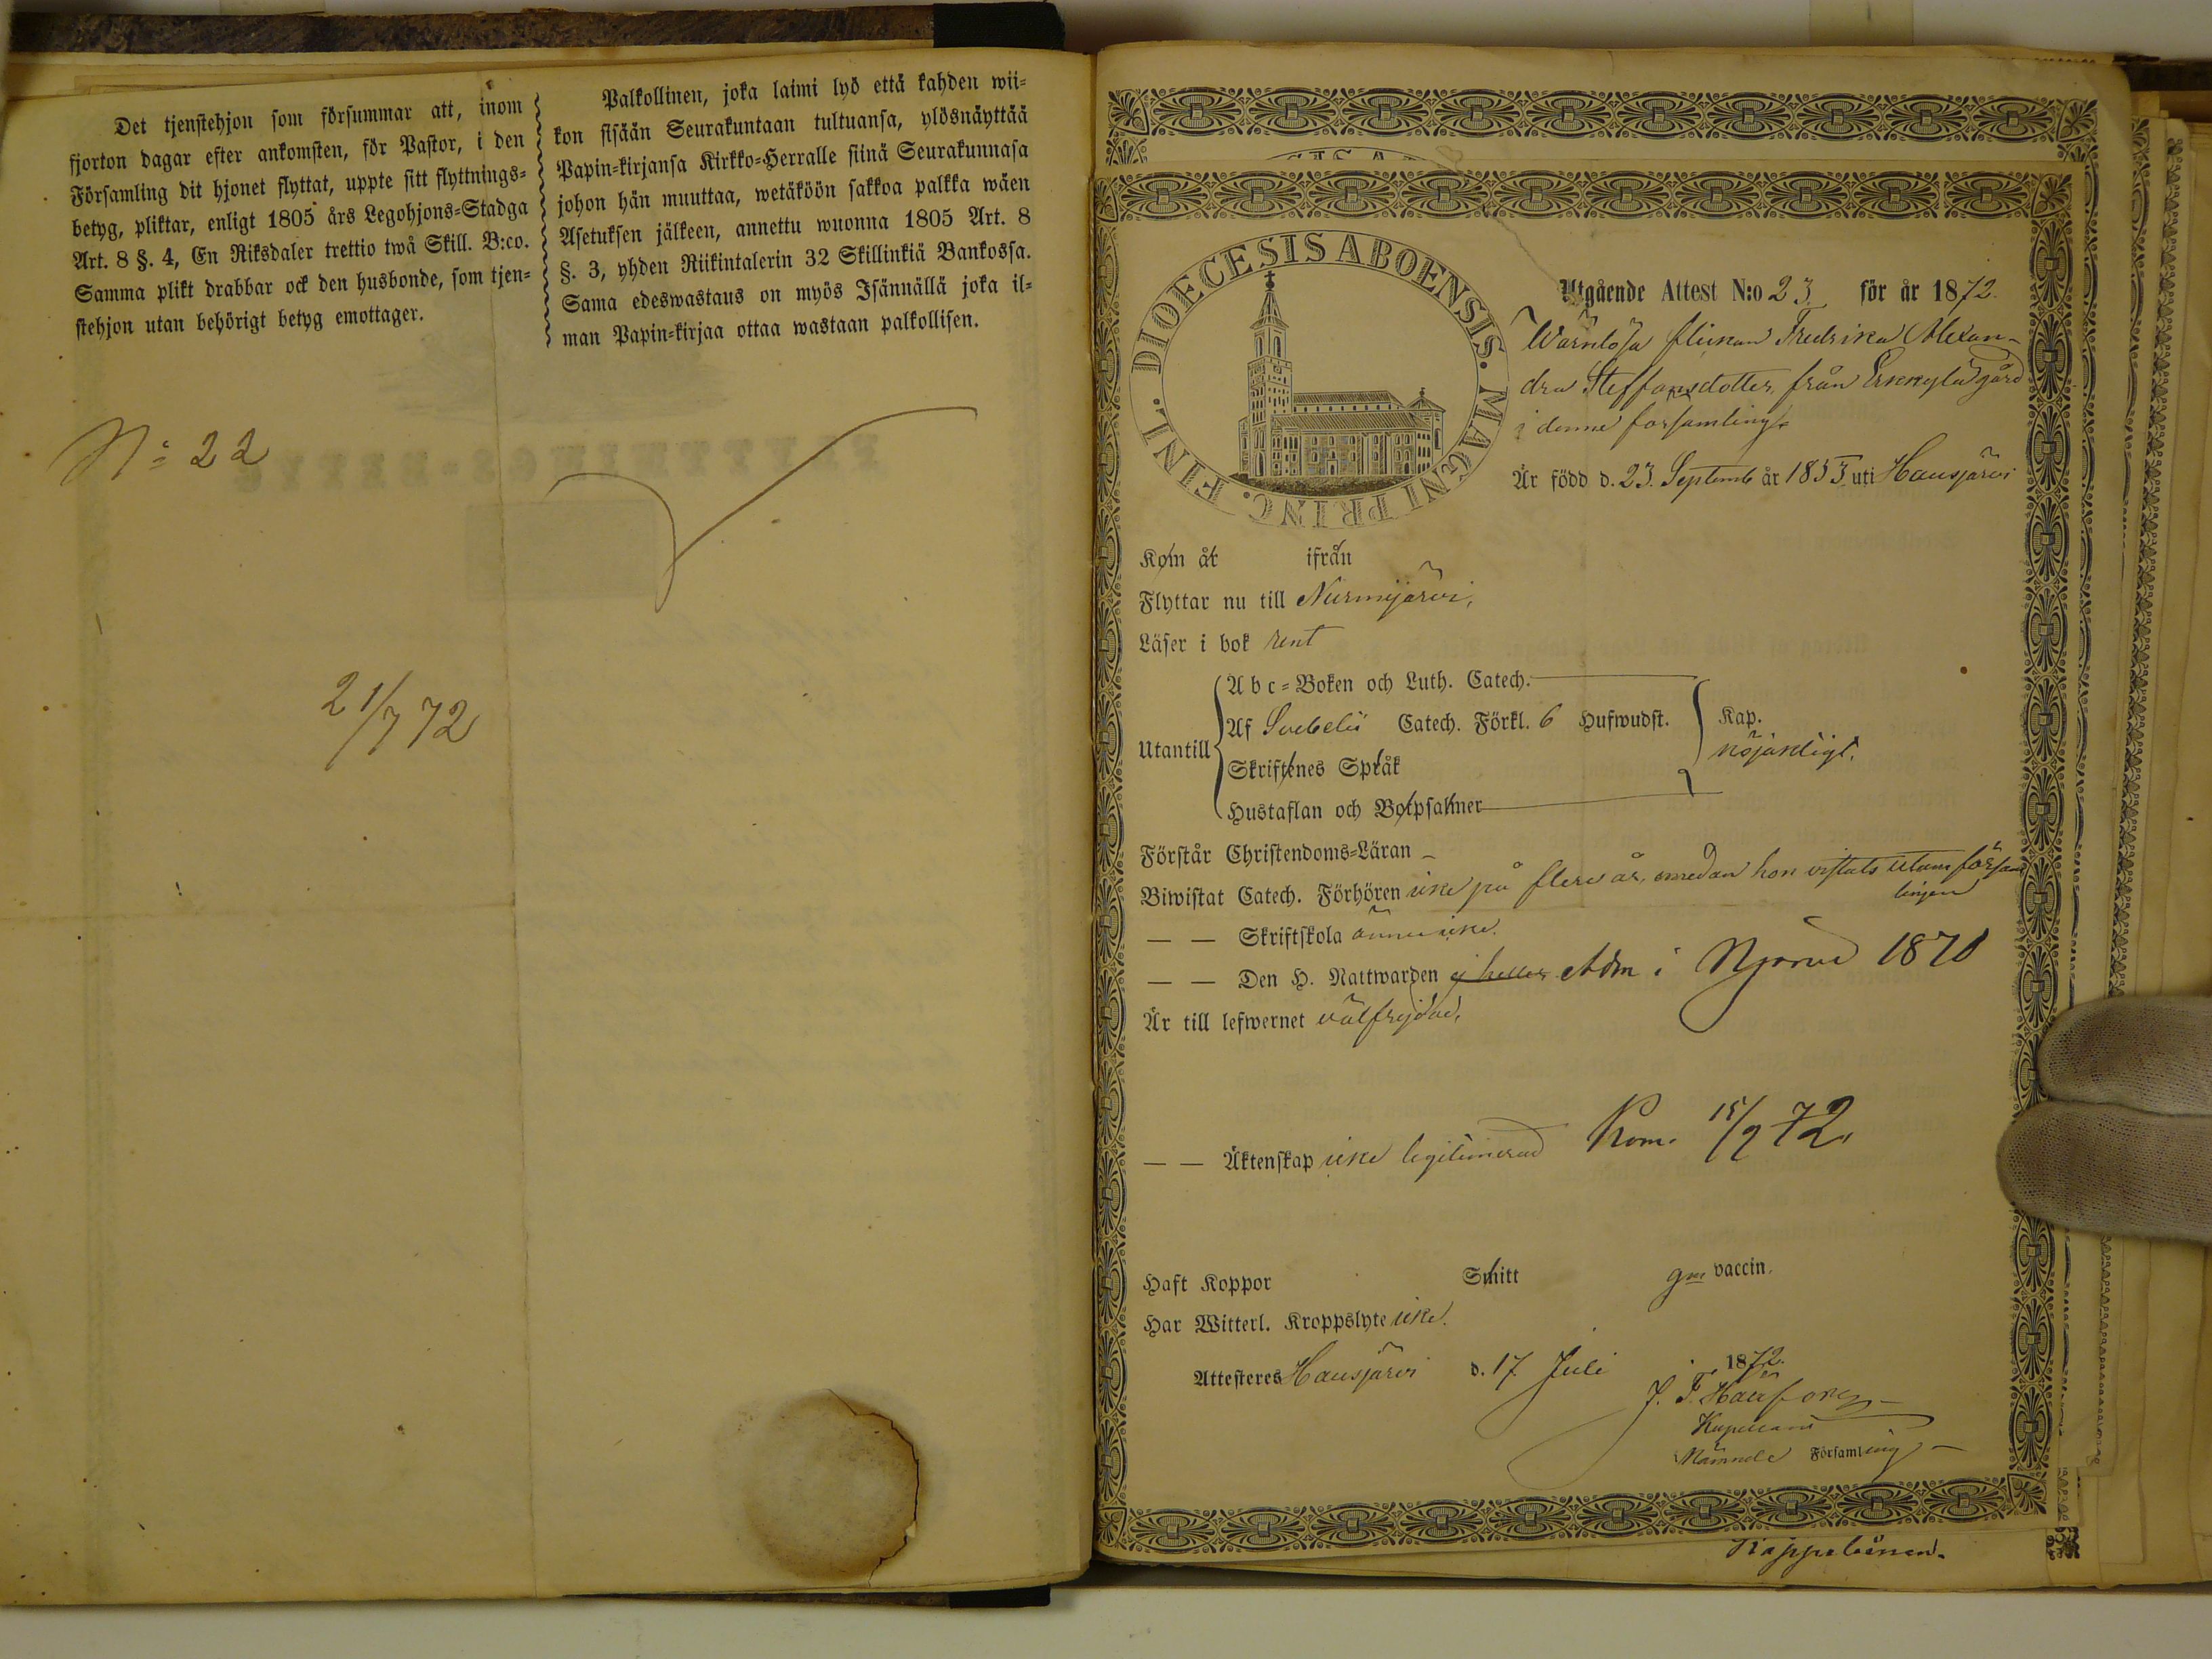 Det tjenstehjon som försummar att, inom
fjorton dagar efter ankomsten, för Pastor, i den
Församling dit hjonet flyttat, uppte sitt flyttnings-
betyg, pliktar, enligt 1805 års Legohjons-Stadga
Art. 8 §. 4, En Riksdaler trettio twå Skill. B:co.
Samma plikt drabbar ock den husbonde, som tjen-
stehjon utan behörigt betyg emottager.
Palkollinen, joka laimi lyö että kahden wii-
kon sisään Seurakuntaan tultuansa, ylösnäyttää
Papin-kirjansa Kirkko-Herralle siinä Seurakunnasa
johon hän muuttaa, wetäköön sakkoa palkka wäen
Asetuksen jälkeen, annettu wuonna 1805 Art. 8
§. 3, yhden Riikintalerin 32 Skillinkiä Bankossa.
Sama edeswastaus on myös Isännällä joka il-
man Papin-kirjaa ottaa wastaan palkollisen.
No 22
21/7 72
DIOECESIS ABOENSIS. MAGNI PRINC. FINL.
Utgående Attest N:o 23 för år 1872.
Wärnlösa flickan Fredrika Alexan-
dra Steffansdotter, från Erkkylä gård
i denne församling
Är född d. 23. Septemb år 1853 uti Hausjärvi
Kom år ifrån
Flyttar nu till Nurmijärvi,
Läser i bok rent
Utantill
Abc-Boken och Luth. Catech.
Af Svebelii Catech. Förkl. 6 Hufwudst.
Skriftenes Språk
Hustaflan och Botpsalmer
Kap.
nöjaktigt.
Förstår Christendoms-Läran -
Biwistat Catech. Förhören icke på flere år, emedan hon vistats utom försam
lingen
— — Skriftskola ännu icke.
— — Den H. Nattwarden ej heller Adm i 1870
Är till lefwernet välfrejdad,
— — Äktenskap icke legitimerad Kom. 15/9 72.
Haft Koppor Smitt gm vaccin.
Har Witterl. Kroppslyte icke.
Attesteres Hausjärvi d. 17 Juli 1872.
J. F.
Kapellan i
Nämnde Församling
Kappalainen.